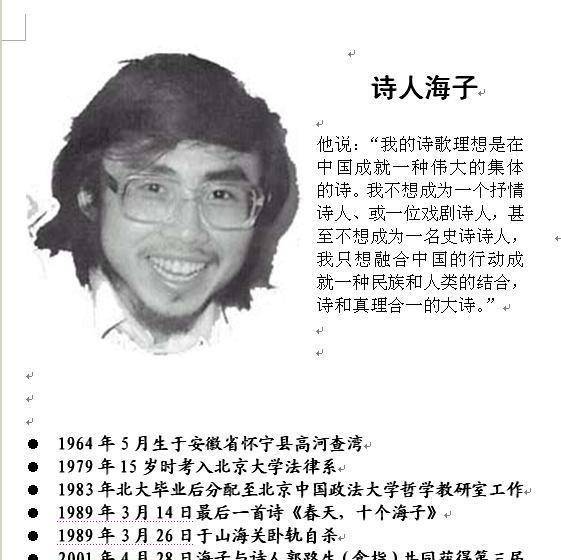 诗人海子
他说：“我的诗歌理想是在
中国成就一种伟大的集体
的诗。我不想成为一个抒情
诗人、或一位戏剧诗人，甚
至不想成为一名史诗诗人，
我只想融合中国的行动成
就一种民族和人类的结合，
诗和真理合一的大诗。”
1964 年 5 月生于安徽省怀宁县高河查湾
1979 年 15 岁时考入北京大学法律系
1983 年北大毕业后分配至北京中国政法大学哲学教研室工作
1989 年 3 月 14 日最后一首诗《春天，十个海子》
1989 年 3 月 26 日于山海关卧轨自杀
2001 年 4 月 28 日海子与诗人郭路生（食指）共同获得第三届